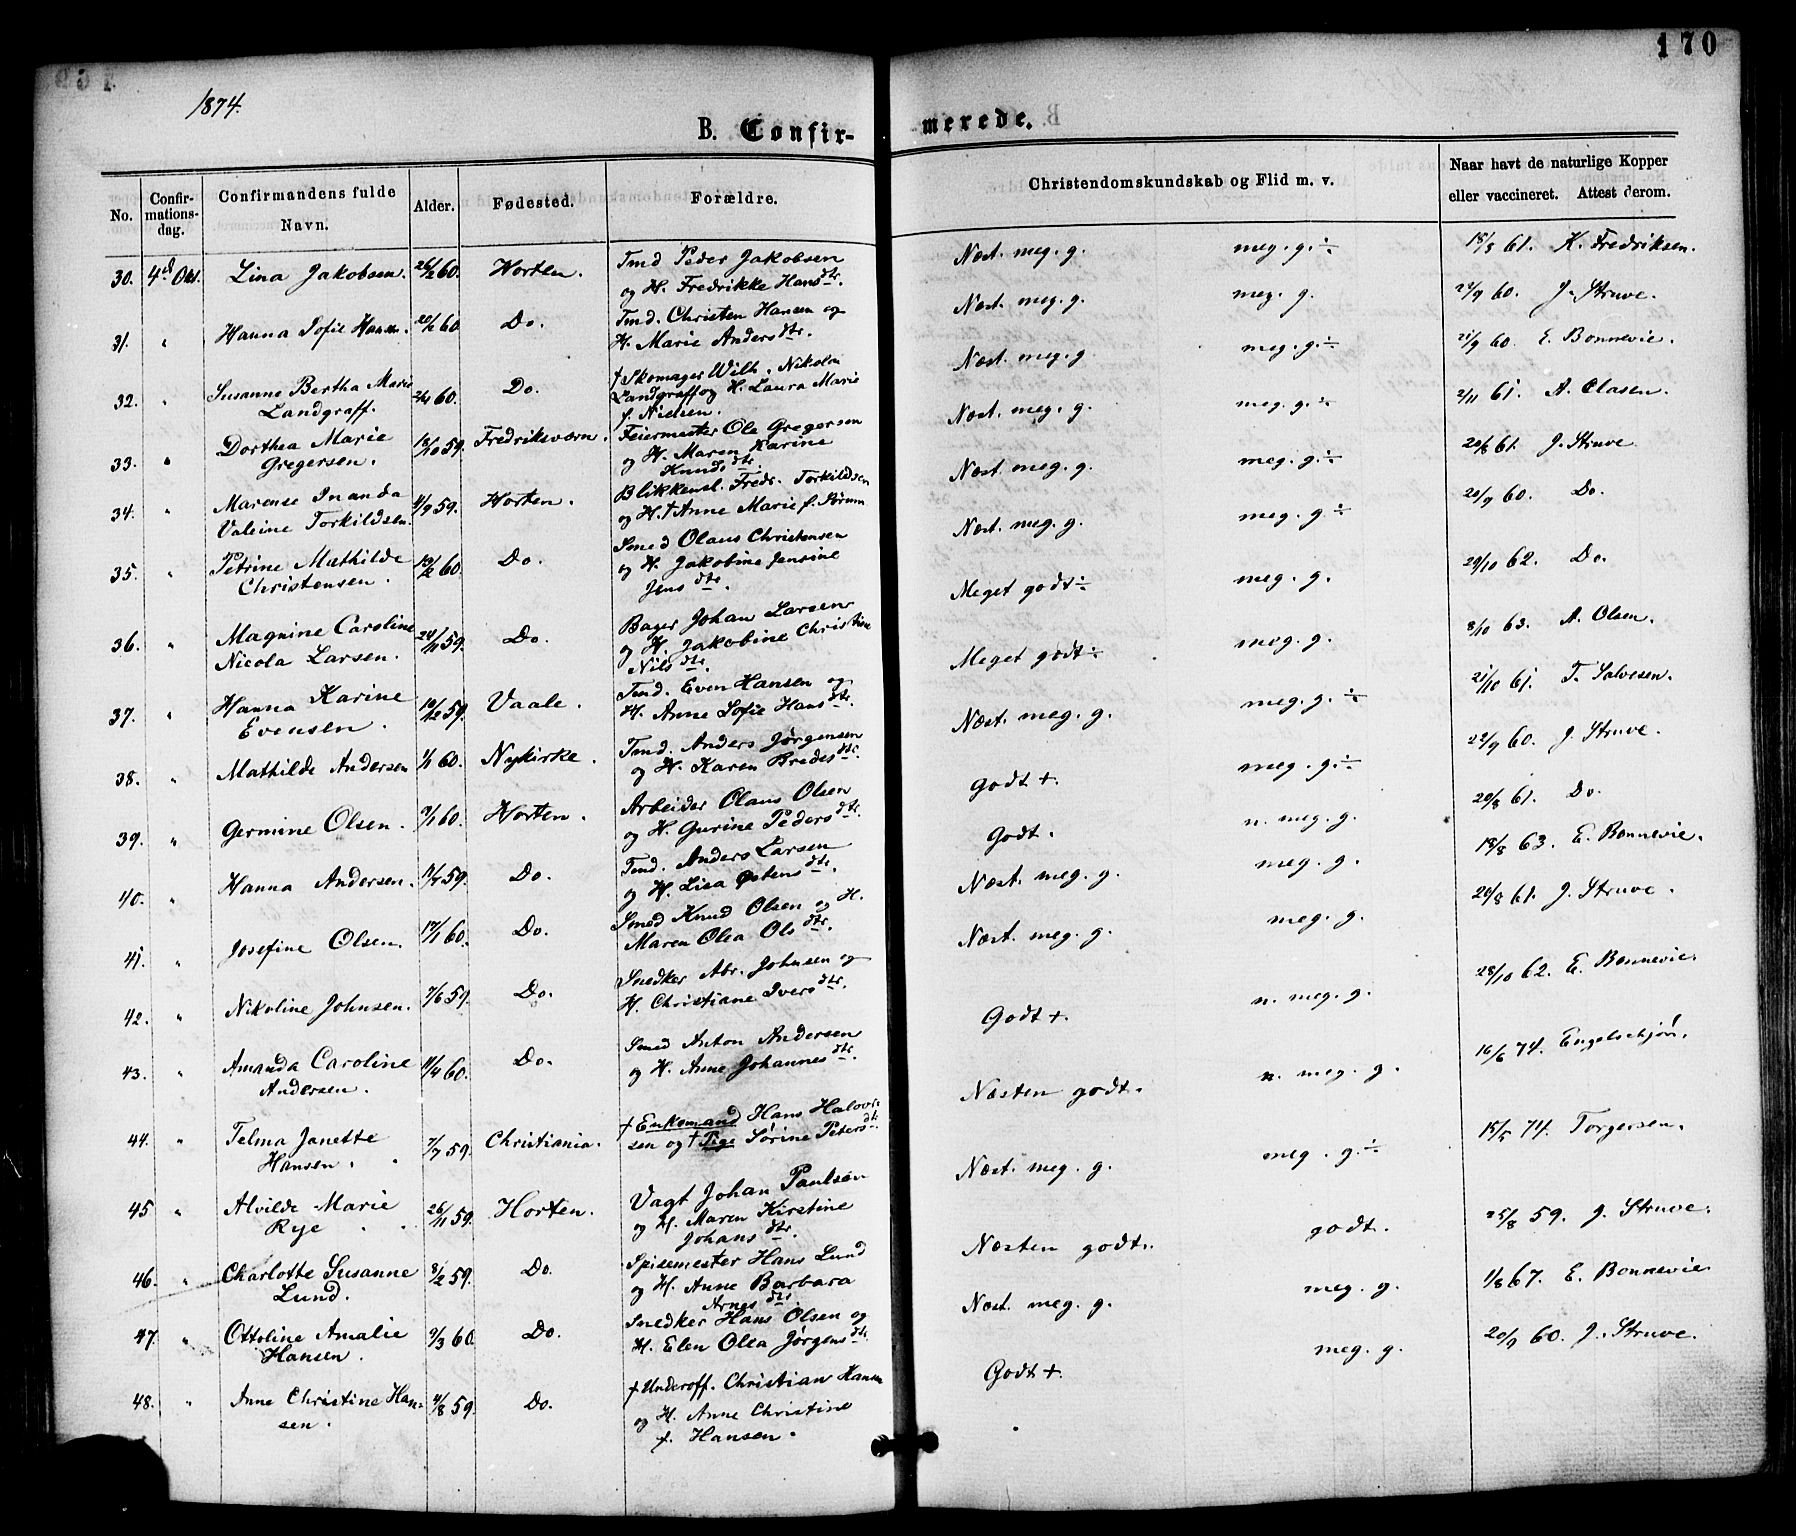 170
1874.
B. Confirmerede.
No. Confirmationsdag. Confirmandens fulde Navn. Alder. Fødested. Forældre. Christendomskundskab og Flid m. v. Naar havt de naturlige Kopper eller vaccineret. Attest derom.
30. 4d Okt. Lina Jakobsen. 26/2 60. Horten. Tmd Peder Jakobsen og H. Fredrikke Hansdtr. Næst. meg. g. meg. g. ÷ 18/8 61. K. Fredriksen.
31. " Hanna Sofie Hansen. 20/1 60. Do. Tmd. Christen Hansen og H. Marie Andersdtr. Næst. meg. g. meg. g. 22/9 60. J. Struve.
32. " Susanne Bertha Marie Landgraff. 2/4 60. Do. † Skomager Wilh. Nikolai Landgraff og H. Laura Marie f. Nielsen. Næst. meg. g. meg. g. ÷ 21/9 60. E. Bonnevie.
33. " Dorthea Marie Gregersen. 18/10 59. Fredriksværn. Feiermester Ole Gregersen og H. Maren Karine Knudsdtr. Næst. meg. g. meg. g. ÷ 2/11 61. A. Olasen.
34. " Marense Inanda Valeine Torkildsen. 11/9 59. Horten. Blikkensl. Fredr. Torkildsen og H. † Anne Marie f. Sørum Næst. meg. g. meg. g. ÷ 20/8 61. J. Struve
35. " Petrine Mathilde Christensen. 19/2 60. Do. Smed Olaus Christensen og H. Jakobine Jensine Jensdtr. Næst. meg. g. meg. g. ÷ 20/9 60. Do.
36. " Magnine Caroline Nicola Larsen. 24/11 59. Do. Bager Johan Larsen og H. Jakobine Christine Nilsdtr. Meget godt ÷ meg. g. 29/10 62. Do.
37. " Hanna Karine Evensen. 10/12 59. Vaale. Tmd. Even Hansen og H. Anne Sofie Hansdtr. Meget godt ÷ meg. g. 8/10 63. A. Olsen.
38. " Mathilde Andersen 1/1 60. Nykirke. Tmd. Anders Jørgensen og H. Karen Bredesdtr. Næst. meg. g. meg. g. ÷ 21/10 61. T. Salvesen.
39. " Germine Olsen. 9/1 60. Horten. Arbeider Olaus Olsen og H. Gurine Pedersdtr. Godt +. meg. g. ÷ 22/9 60. J. Struve.
40. " Hanna Andersen. 11/7 59. Do. Tmd. Anders Larsen og H. Lisa Østensdtr. Godt. n. meg. g. 20/8 61. Do.
41. " Josefine Olsen. 17/1 60. Do. Smed Knud Olsen og H. Maren Olea Olsdtr. Næst. meg. g. meg. g. 18/8 63. E. Bonnevie.
42. " Nikoline Johnsen. 7/6 59. Do. Snedker Abr. Johnsen og H. Christiane Iversdtr. Næst. meg. g. meg. g. 20/8 61. J. Struve.
43. " Amanda Caroline Andersen. 11/4 60. Do. Smed Anton Andersen og H. Anne Johannesdtr. Godt +. n. meg. g. 28/10 62. E. Bonnevie.
44. " Telma Janette Hansen. 7/7 59. Christiania. † Enkemand Hans Halvorsen og † Pige Sørine Petersdtr. Næsten godt. n. meg. g. 16/6 74. Engelschjøn.
45 " Alvilde Marie Rye 26/11 59. Horten. Vagt Johan Paulsen og H. Maren Kirstine Johansdtr. Næst. meg. g. meg. g. ÷ 15/5 74. Torgersen.
46. " Charlotte Susanne Lund. 8/2 59. Do. Spisemester Hans Lund og H. Anne Barbara Arnesdtr. Næsten godt. godt. 25/8 59. J. Struve.
47. " Ottoline Amalie Hansen. 9/3 60. Do. Snedker Hans Olsen og H. Elen Olea Jørgensdtr. Næst. meg. g. meg. g. 1/8 67. E. Bonnevie
48. " Anne Christine Hansen. 4/8 59. Do. † Underoff. Christian Hansen og H. Anne Christine f. Hansen. Godt +. meg. g. 20/9 60. J. Struve.